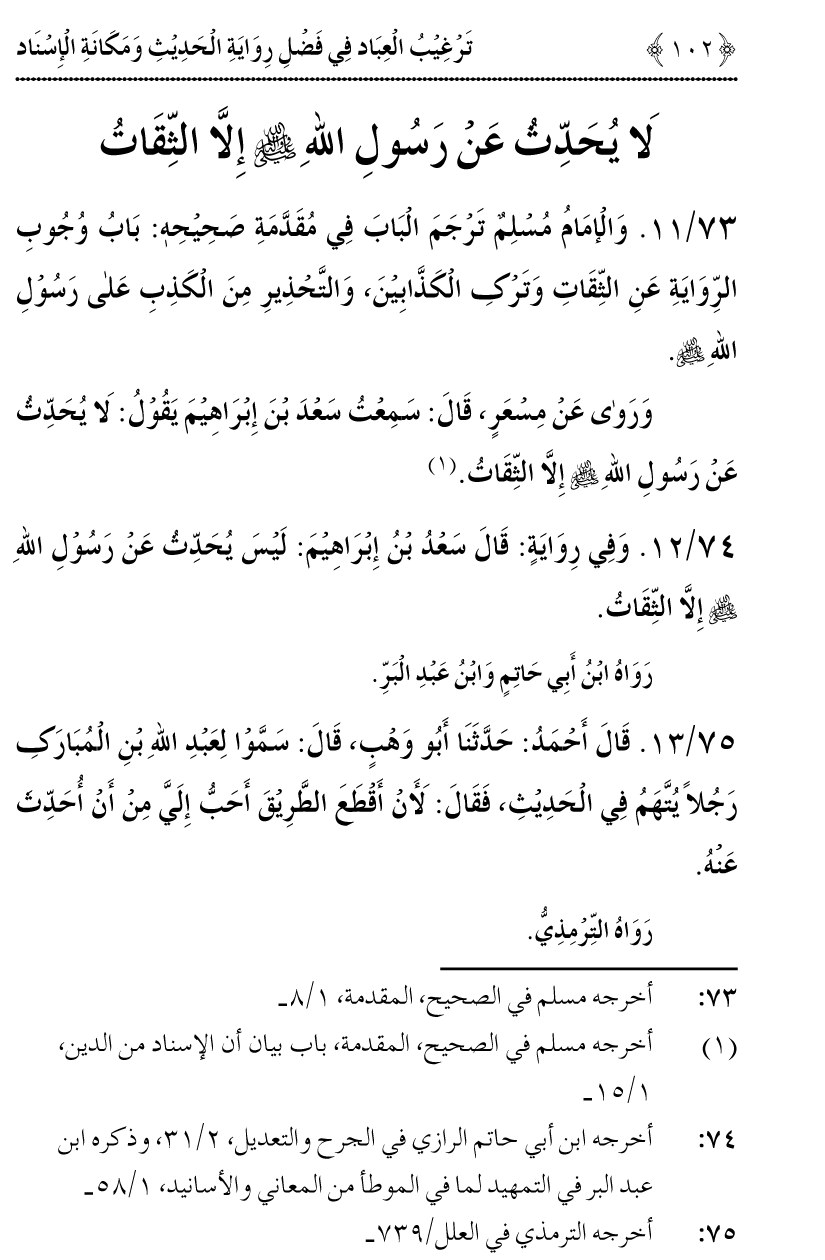 ﴿١٠٢﴾ تَرْغِيْبُ الْعِبَاد فِي فَضْلِ رِوَايَةِ الْحَدِيْثِ وَمَكَانَةِ الْإِسْنَاد
لَا يُحَدِّثُ عَنْ رَسُولِ اللهِ ﷺ إِلَّا الثِّقَاتُ
١١/٧٣. وَالْإِمَامُ مُسْلِمٌ تَرْجَمَ الْبَابَ فِي مُقَدَّمَةِ صَحِيْحِهٖ: بَابُ وُجُوبِ
الرِّوَايَةِ عَنِ الثِّقَاتِ وَتَرْكِ الْكَذَّابِيْنَ، وَالتَّحْذِيرِ مِنَ الْكَذِبِ عَلٰى رَسُوْلِ
اللهِ ﷺ.
وَرَوٰى عَنْ مِسْعَرٍ، قَالَ: سَمِعْتُ سَعْدَ بْنَ إِبْرَاهِيْمَ يَقُوْلُ: لَا يُحَدِّثُ
عَنْ رَسُولِ اللهِ ﷺ إِلَّا الثِّقَاتُ.(١)
١٢/٧٤. وَفِي رِوَايَةٍ: قَالَ سَعْدُ بْنُ إِبْرَاهِيْمَ: لَيْسَ يُحَدِّثُ عَنْ رَسُوْلِ اللهِ
ﷺ إِلَّا الثِّقَاتُ.
رَوَاهُ ابْنُ أَبِي حَاتِمٍ وَابْنُ عَبْدِ الْبَرِّ.
١٣/٧٥. قَالَ أَحْمَدُ: حَدَّثَنَا أَبُو وَهْبٍ، قَالَ: سَمَّوْا لِعَبْدِ اللهِ بْنِ الْمُبَارَكِ
رَجُلاً يُتَّهَمُ فِي الْحَدِيْثِ، فَقَالَ: لَأَنْ أَقْطَعَ الطَّرِيْقَ أَحَبُّ إِلَيَّ مِنْ أَنْ أُحَدِّثَ
عَنْهُ.
رَوَاهُ التِّرْمِذِيُّ.
٧٣: أخرجه مسلم في الصحيح، المقدمة، ٨/١ـ
(١) أخرجه مسلم في الصحيح، المقدمة، باب بيان أن الإسناد من الدين،
١٥/١ـ
٧٤: أخرجه ابن أبي حاتم الرازي في الجرح والتعديل، ٣١/٢، وذكره ابن
عبد البر في التمهيد لما في الموطأ من المعاني والأسانيد، ٥٨/١ـ
٧٥: أخرجه الترمذي في العلل/٧٣٩ـ